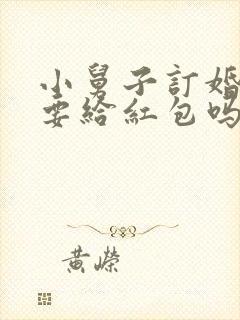 小舅子訂婚
要給紅包嗎
黃嶸